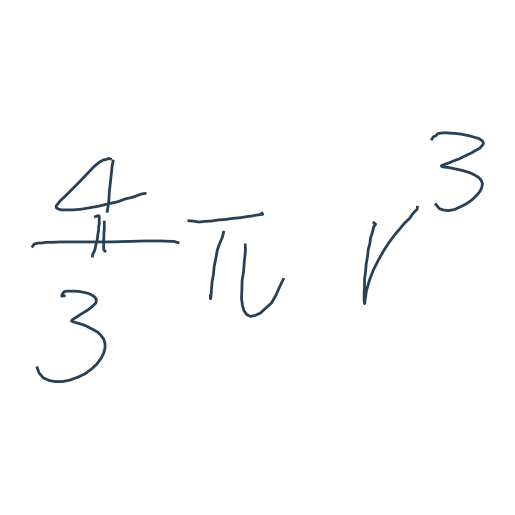 4/3 π r³